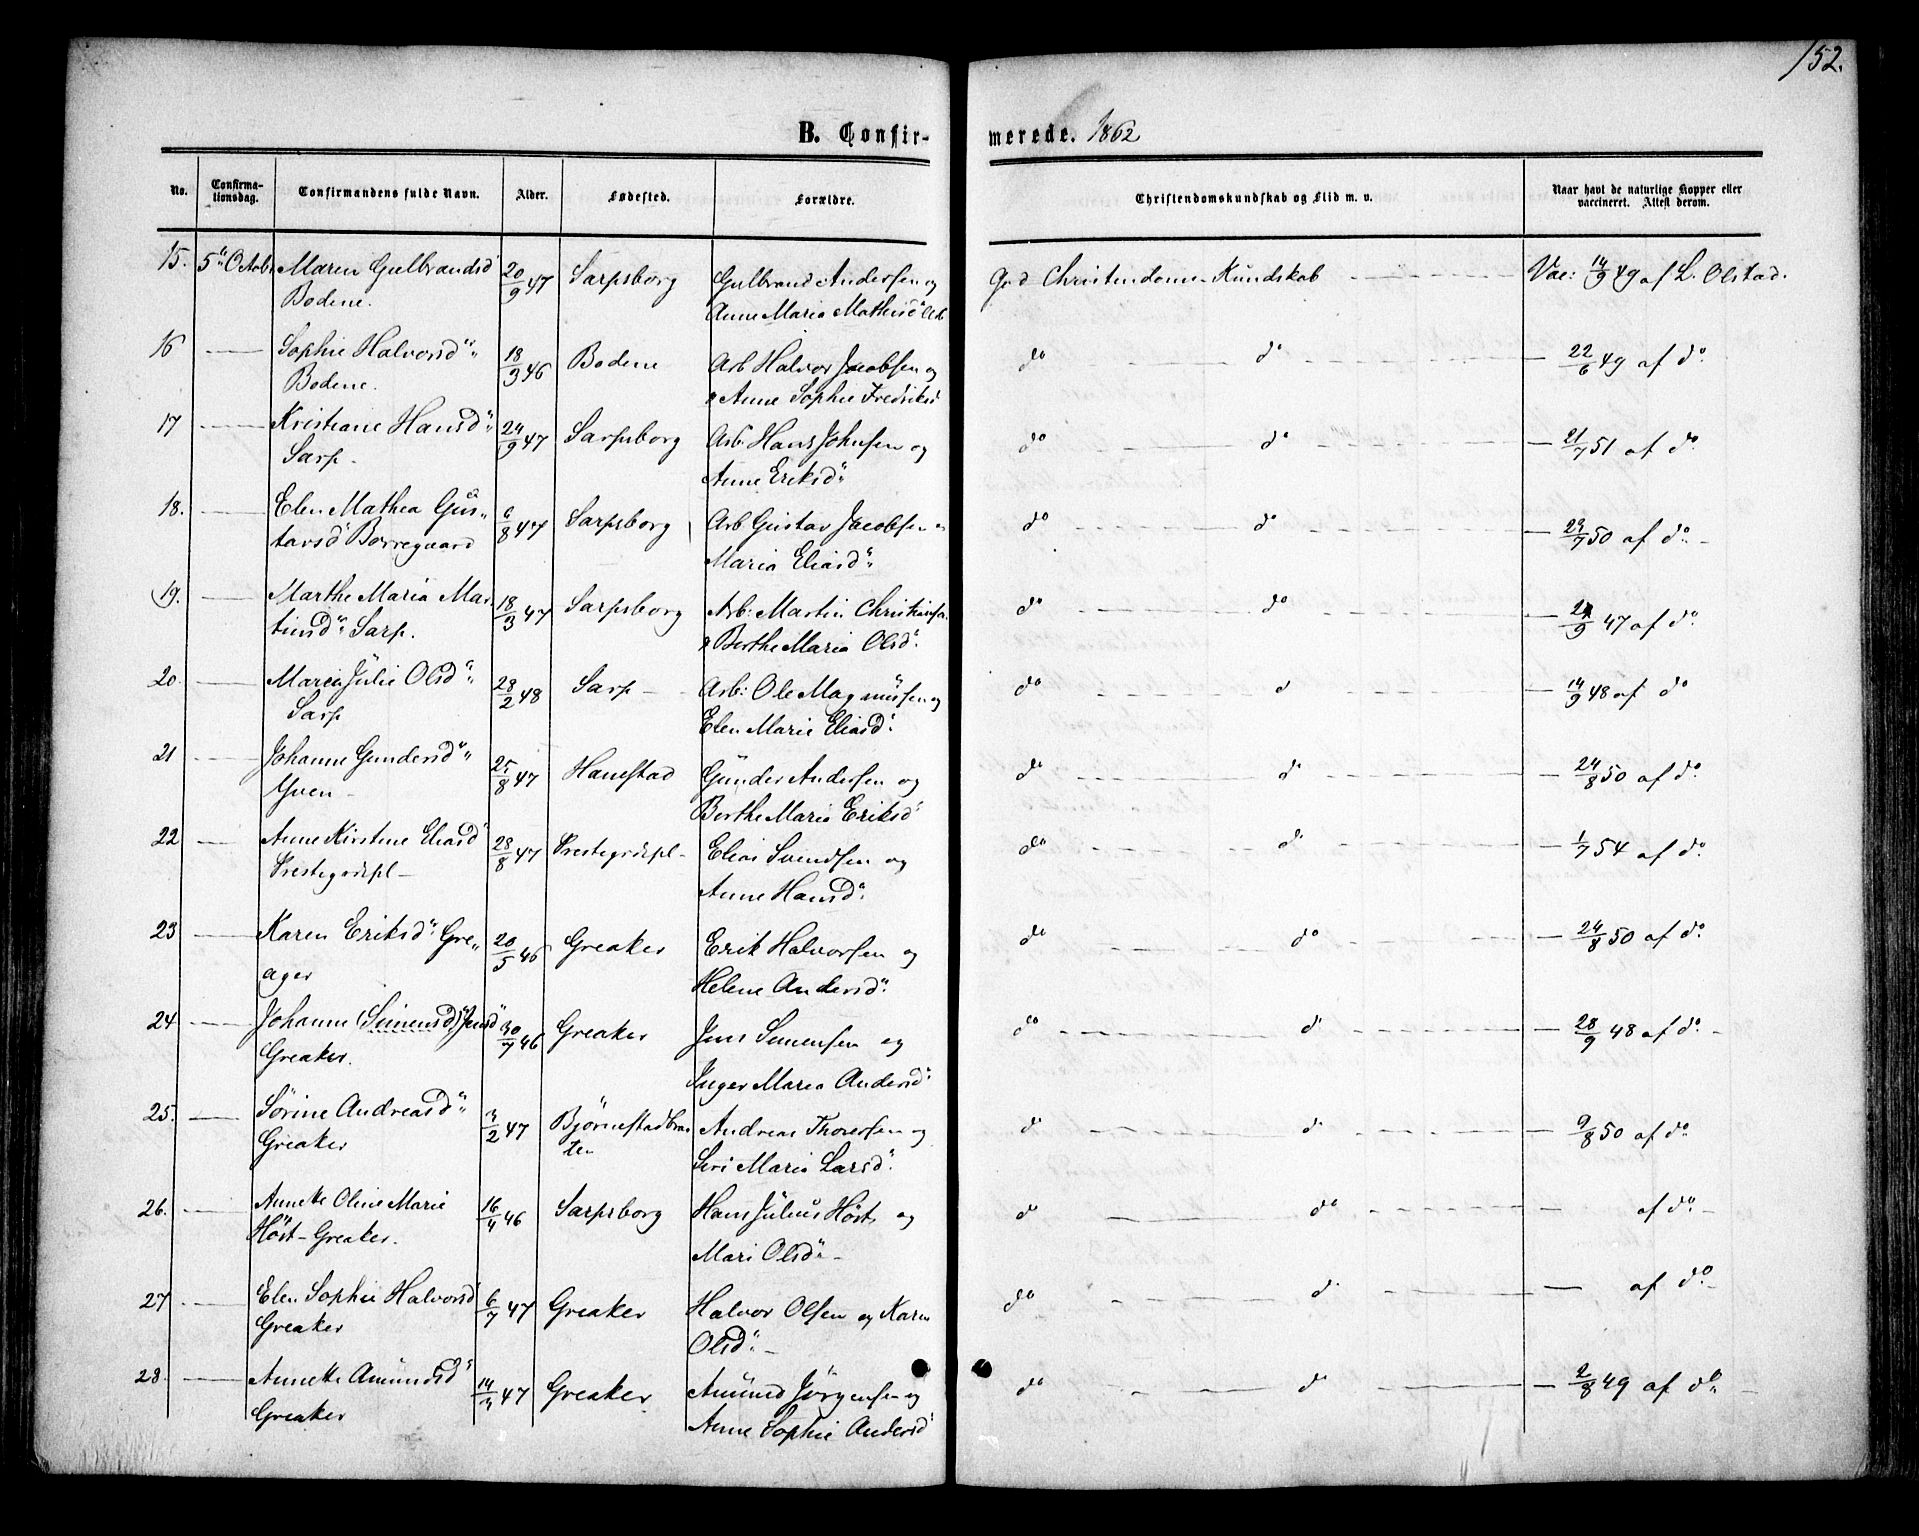 152.
B. Confirmerede. 1862
No. Confirmationsdag. Confirmandens fulde Navn. Alder. Fødested. Forældre. Christendomskundskab og Flid m. v. Naar havt de naturlige Kopper eller vaccineret. Attest derom.
15. 5" Octobr Maren Gulbrandsd 20/9 47 Sarpsborg Gulbrand Andersen og God Christendoms-Kundskab Vac: 14/9 49 af L. Olstad.
Bodene. Anne Maria Mathisd"
16 — Sophie Halvorsd" 18/3 46 Bodene Arb Halvor Jacobsen og do do — 22/6 49 af do
Bodene. Anne Sophie Fredriksd
17 — Kristiane Hansd" 24/9 47 Sarpsborg Arb. Hans Johnsen og do do — 21/7 51 af do
Sarp. Anne Eriksd"
18. — Elen Mathea Gus- 6/8 47 Sarpsborg Arb Gustav Jacobsen do do — 29/7 50 af do
tavsd Borregaard Maria Eliasd"
19. — Marthe Maria Mar- 18/3 47 Sarpsborg Arb: Martin Christiansen do do — /9 47 af do
tinsd" Sarp. Berthe Maria Olsd"
20. — Maren Julie Olsd" 28/2 48 Sarp — Arb: Ole Magnussen og do d — 14/9 48 af do
Sarp Elen Marie Eliasd"
21 — Johanne Gundersd" 25/8 47 Hanestad Gunder Andersen og do d — 24/8 50 af do
Yven — Berthe Maria Eriksd
22 — Anne Kirstine Eliasd 28/8 47 Prestegrdspl — Elias Svendsen og do d — 1/7 54 af do
Prestegrdspl — Anne Hansd"
23 — Karen Eriksd" Gre- 20/5 46 Greaker Erik Halvorsen og do do — 24/8 50 af do
ager Helene Andersd"
24 — Johanne (Simensd) Jensd" 30/7 46 Greaker Jens Simensen og do d — 28/9 48 af do
Greaker. Inger Maria Andersd"
25. — Sörine Andreasd" 3/2 47 Bjørnestadbra- Andreas Thoresen og d d — 9/8 50 af do
Greaker ten Siri Maria Larsd"
26. — Annette Oline Marie 16/4 46 Sarpsborg Hans Julius Höst og do do af do
Höst — Greaker. Mari Olsd" —
27 — Elen Sophie Halvorsd 6/7 47 Greaker Halvor Olsen og Karen do d — af do
Greaker Olsd" —
28. — Annette Amundsd" 14/3 47 Greaker Amund Jörgensen og do d — 2/8 49 af do
Greaker Anne Sophie Andersd